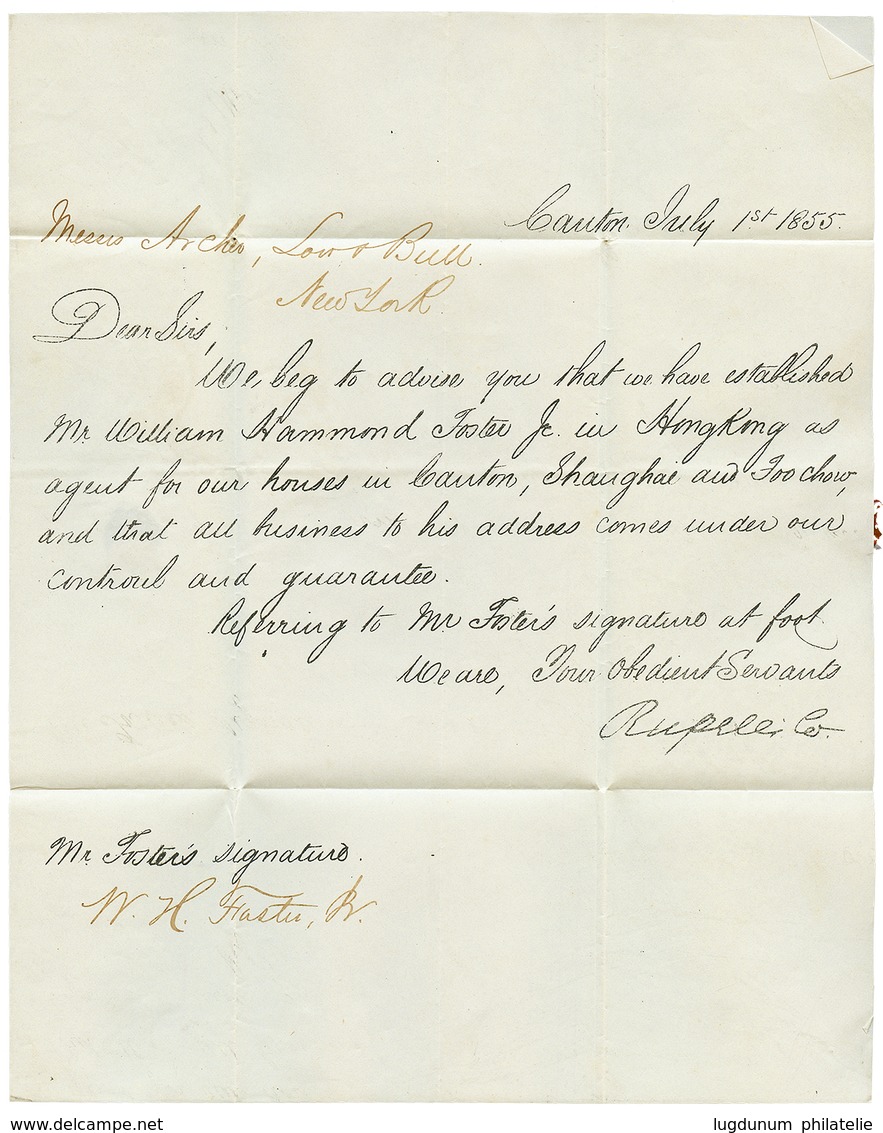 Canton July 1st 1855.
Messrs Archer, Low & Bull.
New York.
Dear Sirs,
We beg to advise you that we have established
Mr William Hammond Foster Jr. in HongKong as
agent for our houses in Canton, Shanghai and Foochow,
and that all business to his address comes under our
controul and guarantee.
Referring to Mr Foster's signature at foot
We are, Your Obedient Servants
Russell & Co.
Mr Foster's signature.
W. H. Foster, Jr.
www.delcampe.net
lugdunum philatelie